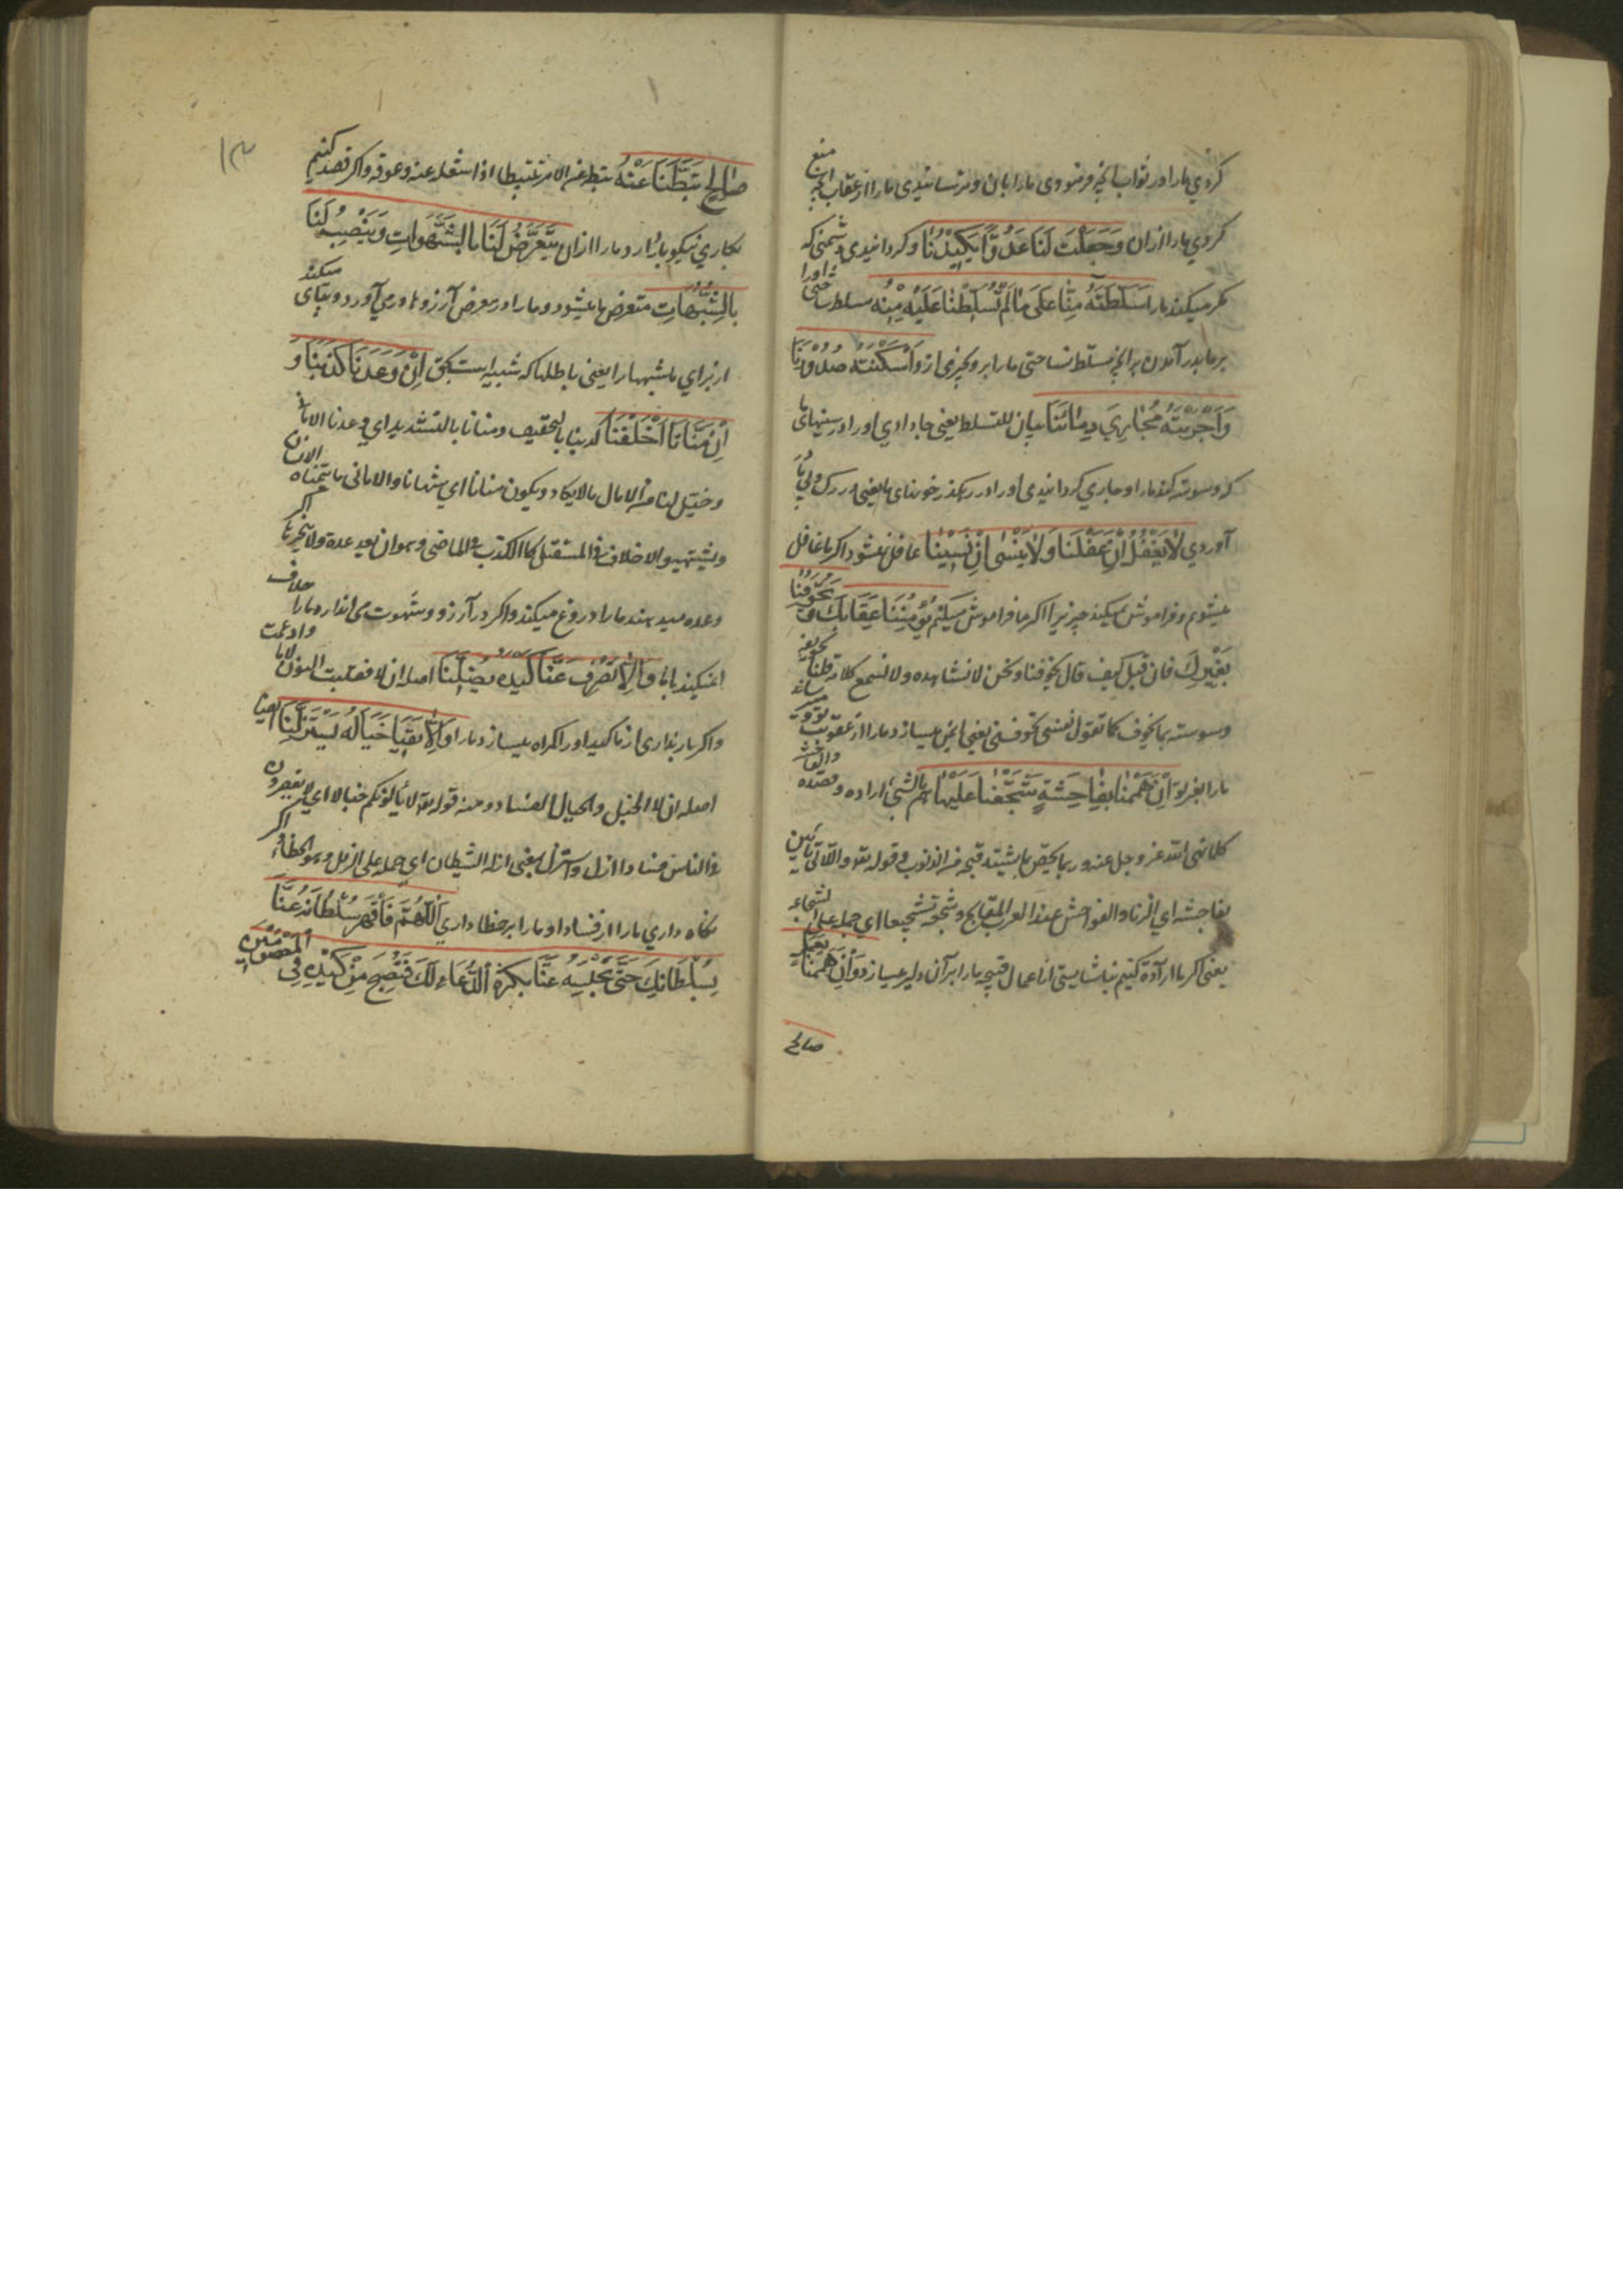 کردی ما را در ثواب آنچه فرمودی ما را بآن و ترسانیدی ما را از عقاب آنچه منع
کردی ما را از آن وَجَعَلْتَ لَنَا عَدُوًّا يَكِيدُنَا و گردانیدی دشمنی که
مکر میکند ما را سَلَّطْتَهُ مِنَّا عَلَى مَا لَمْ تُسَلِّطْنَا عَلَيْهِ مِنْهُ مسلط ساختی او را
بر ما بدر آمدن بر آنچه مسلط نساختی ما را بر و چیزی از و أَسْكَنْتَهُ صُدُورَنَا
وَأَجْرَيْتَهُ مَجَارِيَ دِمَائِنَا بیان للتسلط یعنی جا دادی او را در سینهای ما
که وسوسه کند ما را و جاری گردانیدی او را در رهگذر خونهای ما یعنی در رک و پی ما
آوردی لَا يَغْفُلُ إِنْ غَفَلْنَا وَلَا يَنْسَى إِنْ نَسِينَا غافل نمیشود اگر ما غافل
میشویم و فراموش نمیکند چیزیرا اگر ما فراموش میکنیم يُؤْمِنُنَا عِقَابَكَ وَيُخَوِّفُنَا
بِغَيْرِكَ فان قیل کیف قال یخوفنا و نحن لا نشاهده ولا نسمع کلامه قلنا تخویفه
وسوسته بما یخوف کما تقول نفسی تخوفنی یعنی ایمن میسازد ما را از عقوبت تو و میترساند
ما را بغیر تو إِنْ هَمَمْنَا بِفَاحِشَةٍ شَجَّعَنَا عَلَيْهَا هم بالشیء اراده و قصده والفاحشة
کلما نهی الله عز و جل عنه و ربما یختص بما یشتد قبحه من الذنوب و قوله تعه واللاتی یاتین
بفاحشة ای الزنا والفواحش عند العرب المقابح و شجعه تشجیعا ای حمله علی الشجاعه
یعنی اگر ما اراده کنیم بناشایستی از اعمال قبیحه ما را بر آن دلیر میسازد وَإِنْ هَمَمْنَا بِعَمَلٍ
صالح
۱۳
صَالِحٍ ثَبَّطَنَا عَنْهُ ثبطه عن الامر تثبیطا اذا شغله عنه و عوقه و اگر قصد کنیم
بکاری نیکو باز دارد ما را از آن يَتَعَرَّضُ لَنَا بِالشَّهَوَاتِ وَيَنْصِبُ لَنَا
بِالشُّبُهَاتِ متعرض ما میشود و ما را در معرض آرزوها در می آورد و بپای میکند
از برای ما شبهها را یعنی باطلها که شبیه است بحق إِنْ وَعَدَنَا كَذَبَنَا وَ
إِنْ مَنَّانَا أَخْلَفَنَا کذبنا بالتخفیف و منانا بالتشدید ای وعدنا الامانی
و خیل لنا من الامال ما لا یکاد و یکون منانا ای شهانا والامانی ما یتمناه الانسان
و یشتهیه والاخلاف فی المستقبل کما الکذب فی الماضی و هو ان یعد عدة ولا ینجزها اگر
وعده میدهد ما را دروغ میکند و اگر در آرزو و شهوت می اندازد ما را خلاف
میکند با ما وَإِلَّا تَصْرِفْ عَنَّا كَيْدَهُ يُضِلَّنَا اصله ان لا فقلبت النون لاما و ادغمت
و اگر باز نداری از ما کید او را گمراه میسازد ما را وَإِلَّا تَقِنَا خَبَالَهُ يَسْتَزِلَّنَا ایضا
اصله ان لا الخبل والخبال الفساد و منه قوله تعه لا یألونکم خبالا ای لا یقصرون
فی الناس فسادا ازل واستزل بمعنی ازله الشیطان ای حمله علی الزلل و هو الخطاء اگر
نگاه نداری ما را از فساد او ما را بر خطا داری اللَّهُمَّ فَاقْهَرْ سُلْطَانَهُ عَنَّا
بِسُلْطَانِكَ حَتَّى تَحْبِسَهُ عَنَّا بِكَثْرَةِ الدُّعَاءِ لَكَ فَنُصْبِحَ مِنْ كَيْدِهِ فِي الْمَعْصُومِينَ